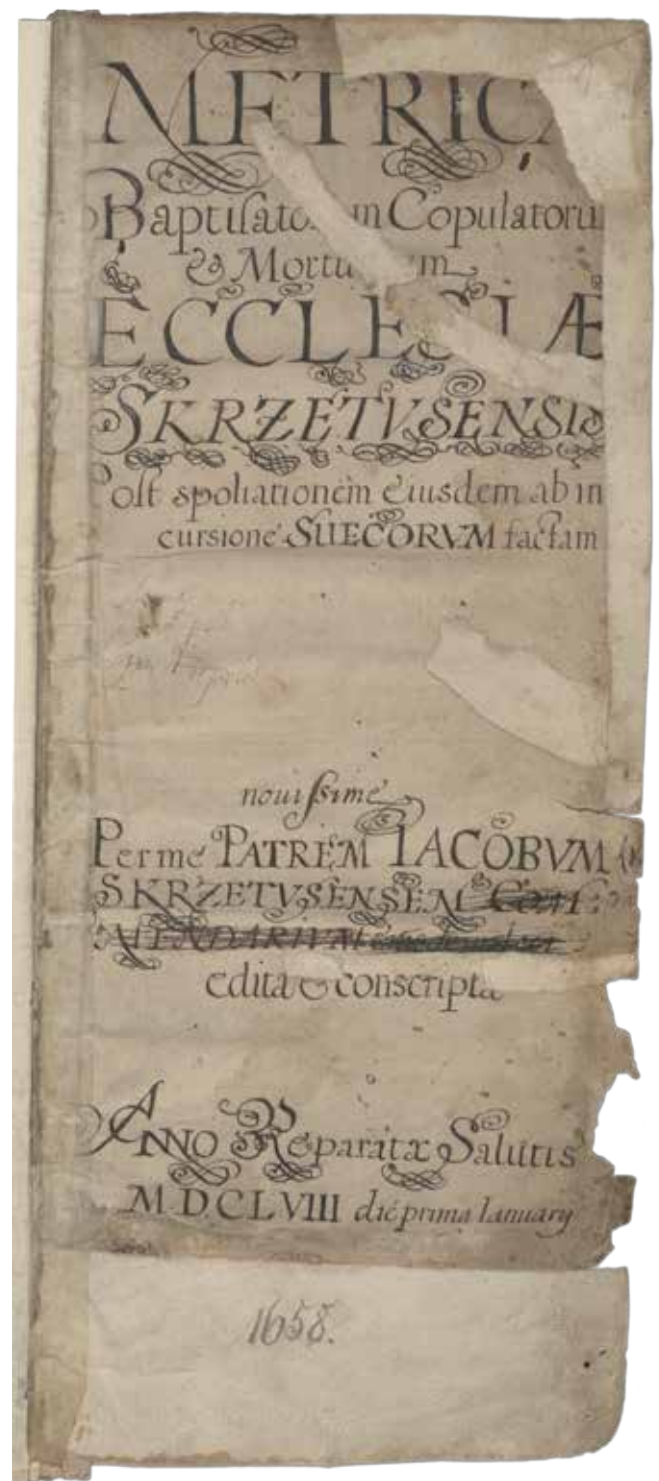 METRICA
Baptisatorum Copulatoru
& Mortuorum
ECCLESIÆ
SKRZETVSENSIS
Post spoliationem eiusdem ab in
cursione SUECORVM factam
novissime
Per me PATREM IACOBVM
SKRZETVSENSEM
edita & conscripta
ANNO Reparatæ Salutis
M D.CLVIII die prima Ianuary
1658.